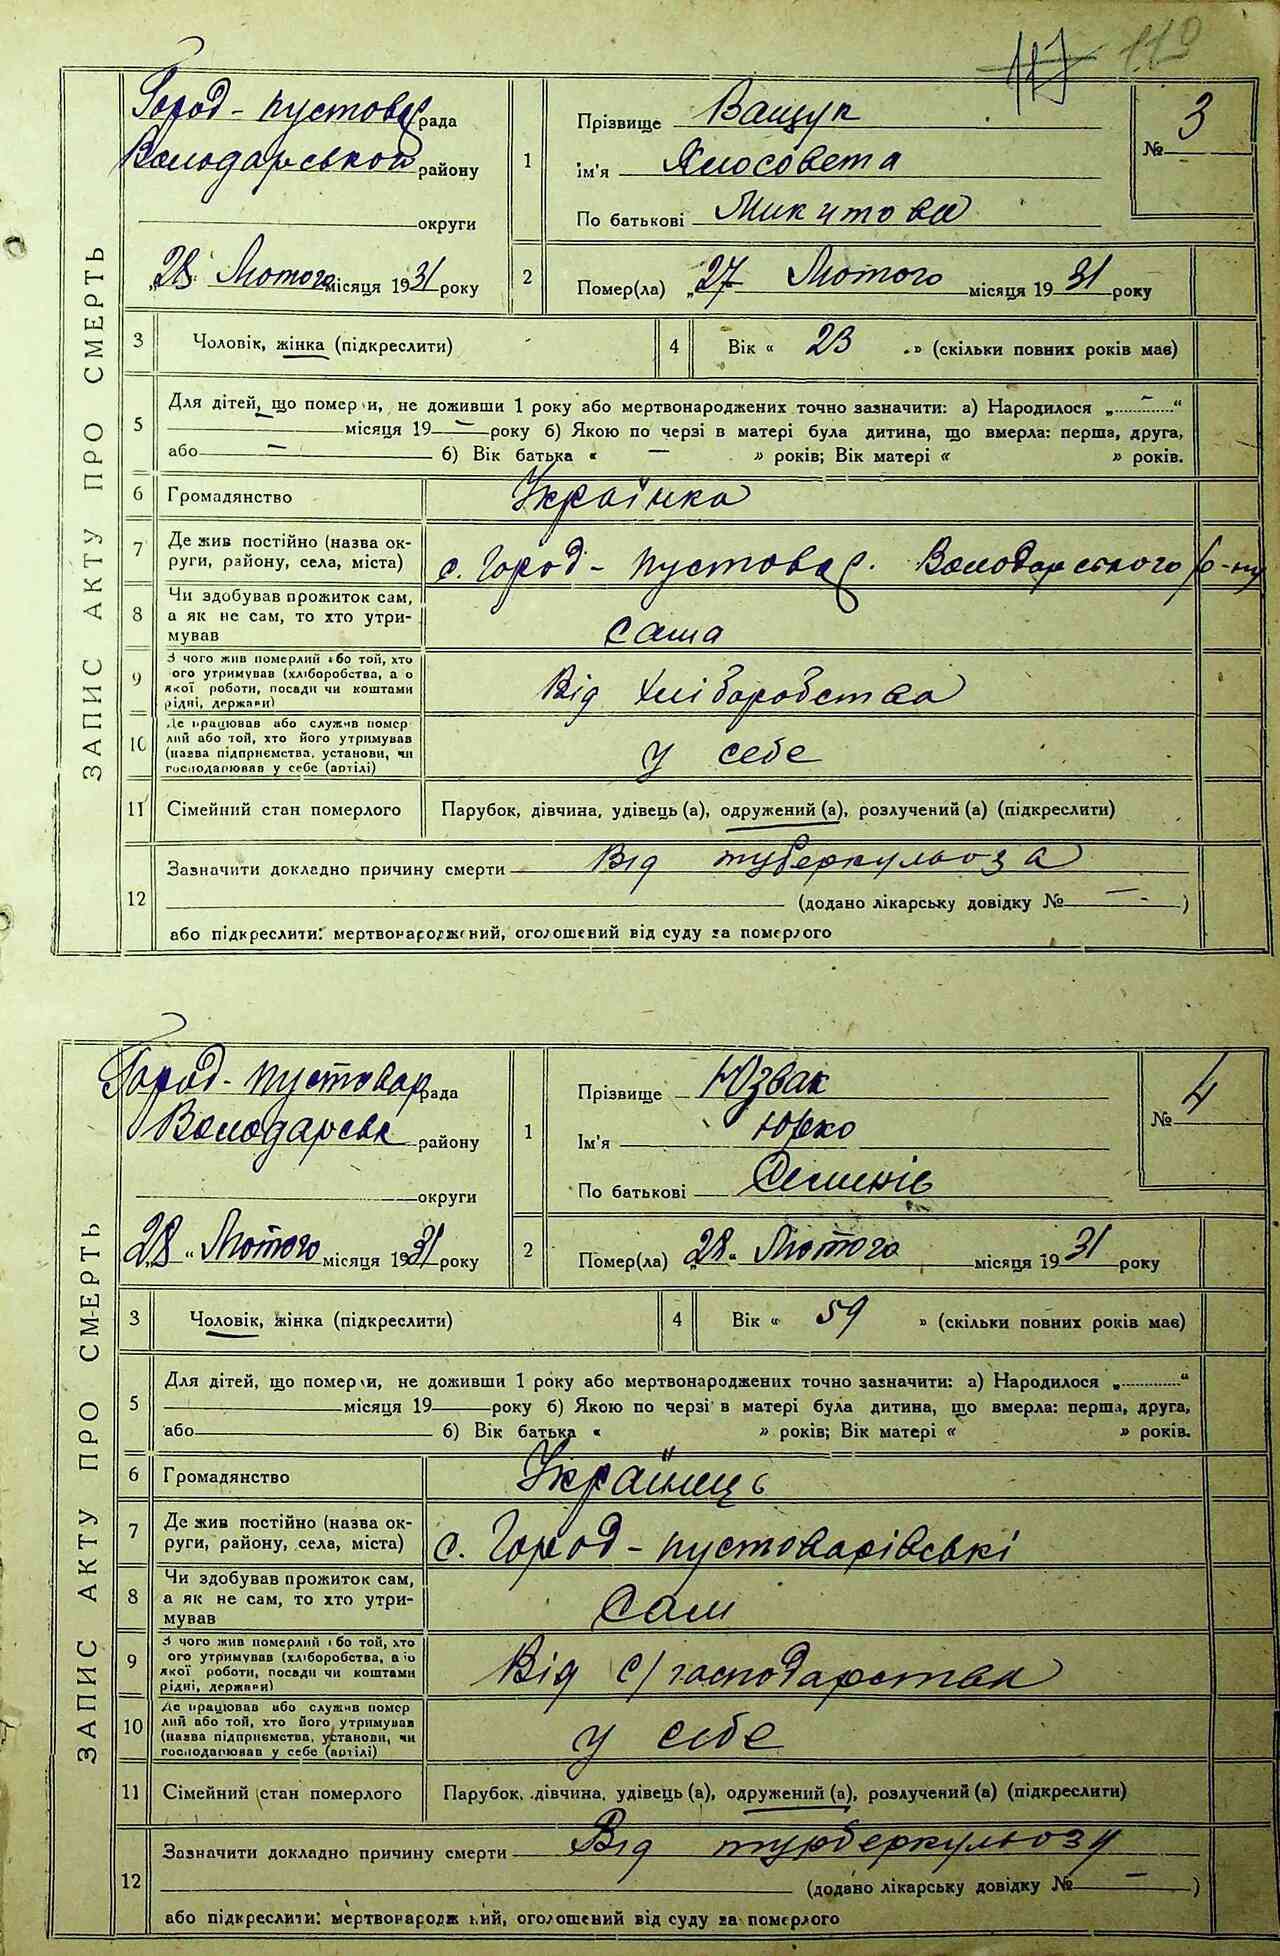 117 119
ЗАПИС АКТУ ПРО СМЕРТЬ
Город-пустовар рада
Володарської району
округи
„28“ Лютого місяця 1931 року
1
Прізвище Ващук
ім'я
По батькові Микитова
№ 3
2
Помер(ла) „27 Лютого місяця 1931 року
3
Чоловік, жінка (підкреслити)
4
Вік « 23 » (скільки повних років має)
5
Для дітей, що померли, не доживши 1 року або мертвонароджених точно зазначити: а) Народилося „ — “
місяця 19 — року б) Якою по черзі в матері була дитина, що вмерла: перша, друга,
або — б) Вік батька « — » років; Вік матері « » років.
6
Громадянство
Українка
7
Де жив постійно (назва ок-
руги, району, села, міста)
с. Город-пустовар. Володарського р-ну
8
Чи здобував прожиток сам,
а як не сам, то хто утри-
мував
сама
9
З чого жив померлий або той, хто
його утримував (хліборобства, або
якої роботи, посади чи коштами
рідні, держави)
Від хліборобства
10
Де працював або служив помер
лий або той, хто його утримував
(назва підприємства, установи, чи
господарював у себе (артілі)
у себе
11
Сімейний стан померлого
Парубок, дівчина, удівець (а), одружений (а), розлучений (а) (підкреслити)
12
Зазначити докладно причину смерти Від туберкульоза
(додано лікарську довідку № — )
або підкреслити: мертвонароджений, оголошений від суду за померлого
ЗАПИС АКТУ ПРО СМЕРТЬ
Город-пустовар рада
Володарськ району
округи
„28“ Лютого місяця 1931 року
1
Прізвище Юзвак
Ім'я Юрко
По батькові
№ 4
2
Помер(ла) „28“ Лютого місяця 1931 року
3
Чоловік, жінка (підкреслити)
4
Вік « 59 » (скільки повних років має)
5
Для дітей, що померли, не доживши 1 року або мертвонароджених точно зазначити: а) Народилося „ “
місяця 19 року б) Якою по черзі в матері була дитина, що вмерла: перша, друга,
або б) Вік батька « » років; Вік матері « » років.
6
Громадянство
Українець
7
Де жив постійно (назва ок-
руги, району, села, міста)
с. Город-пустоварівські
8
Чи здобував прожиток сам,
а як не сам, то хто утри-
мував
сам
9
З чого жив померлий або той, хто
його утримував (хліборобства, або
якої роботи, посади чи коштами
рідні, держави)
Від с/господарства
10
Де працював або служив помер
лий або той, хто його утримував
(назва підприємства, установи, чи
господарював у себе (артілі)
у себе
11
Сімейний стан померлого
Парубок, дівчина, удівець (а), одружений (а), розлучений (а) (підкреслити)
12
Зазначити докладно причину смерти Від турберкульозу
(додано лікарську довідку № — )
або підкреслити: мертвонароджений, оголошений від суду за померлого